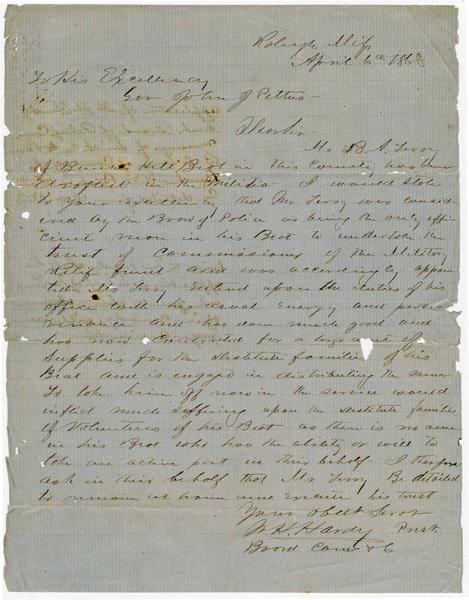 Raleigh Miss
April 6th 1863
To His Excellency
Gov John J Pettus
Dear Sir
Mr B. A. Terry
of Bunker Hill Beat in this County has been
drafted in the Militia I would State
to your excellency that Mr Terry was consid
ered by the Board of Police as being the only effi
cient man in his Beat to undertake the
trust of Commissioner of the Military
Relief fund and was accordingly appoin
ted Mr Terry entered upon the duties of his
office with his usual Energy and perse
verance and has done much good and
has now contracted for a large lot of
Supplies for the destitute families of his
Beat and is engaged in distributing the same
To take him off now in the service would
inflict much suffering upon the destitute families
of Volunteers of his Beat as there is no man
in his Beat who has the ability or will to
take an active part in their behalf I therefore
ask in their behalf that Mr Terry Be detailed
to remain at home and execute his trust
Your obdt Servt
W. H. Hardy Prest.
Board Com &C